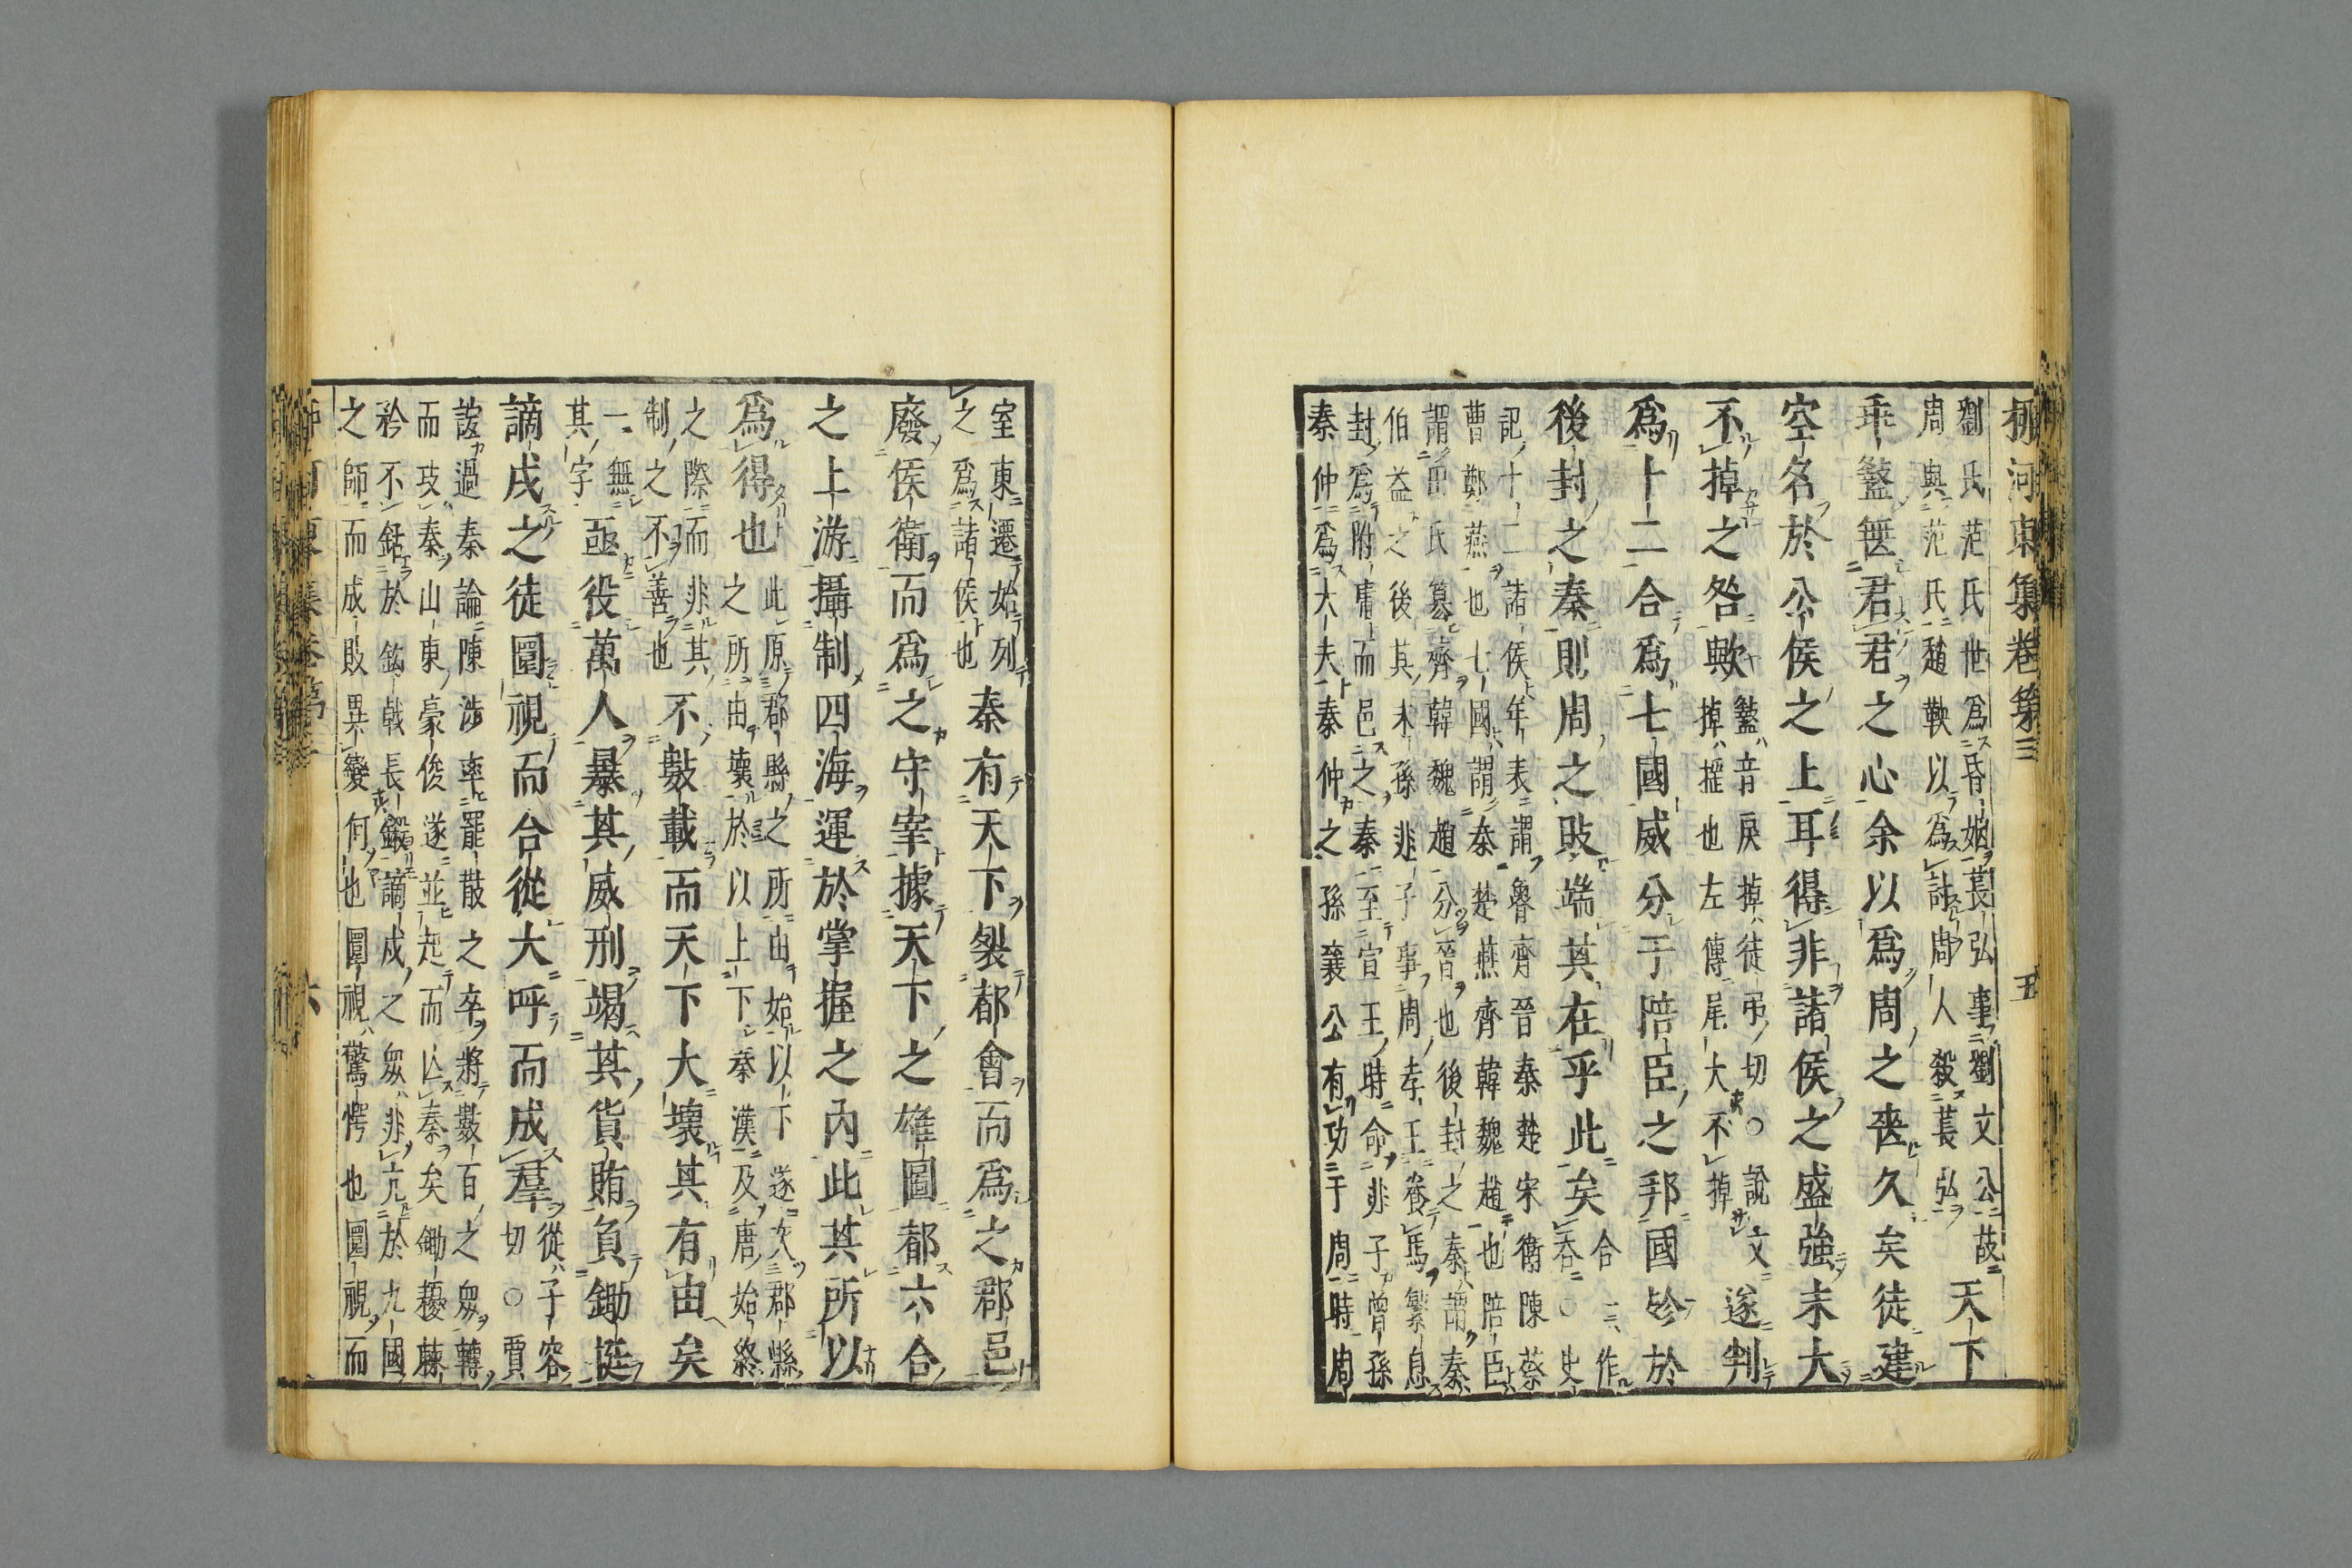 柳河東集卷第三 五
劉氏范氏世爲昏姻萇弘事劉文公故
周與范氏趙鞅以爲討周人殺萇弘
天下
乖盭無君君之心余以爲周之喪久矣徒建
空名於公侯之上耳得非諸侯之盛強末大
不掉之咎歟
盭音戾掉徒弔切○說文
掉搖也左傳尾大不掉
遂判
爲十二合爲七國威分于陪臣之邦國殄於
後封之秦則周之敗端其在乎此矣
合一作
吞○史
記十二諸侯年表謂魯齊晉秦楚宋衛陳蔡
曹鄭燕也七國謂秦楚燕齊韓魏趙也陪臣
謂田氏篡齊韓魏趙分晉也後封之秦謂秦
伯益之後其末孫非子事周孝王養馬繁息
封爲附庸而邑之秦至宣王時命非子曾孫
秦仲爲大夫秦仲之孫襄公有功于周時周
室東遷始列
之爲諸侯也
秦有天下裂都會而爲之郡邑
廢侯衛而爲之守宰據天下之雄圖都六合
之上游攝制四海運於掌握之內此其所以
爲得也
此原郡縣之所由始以下遂欠郡縣
之所由壞於以上下秦漢及唐始終
之際而非其
制之不善也
不數載而天下大壞其有由矣
一無
其字
亟役萬人暴其威刑竭其貨賄負鋤挺
謫戍之徒圜視而合從大呼而成羣
從子容
切○賈
誼過秦論陳涉率罷散之卒將數百之衆轉
而攻秦山東豪俊遂並起而亾秦矣鋤耰棘
矜不銛於鉤戟長鎩謫戍之衆非亢於九國
之師而成敗異變何也圜視驚愕也圜視而